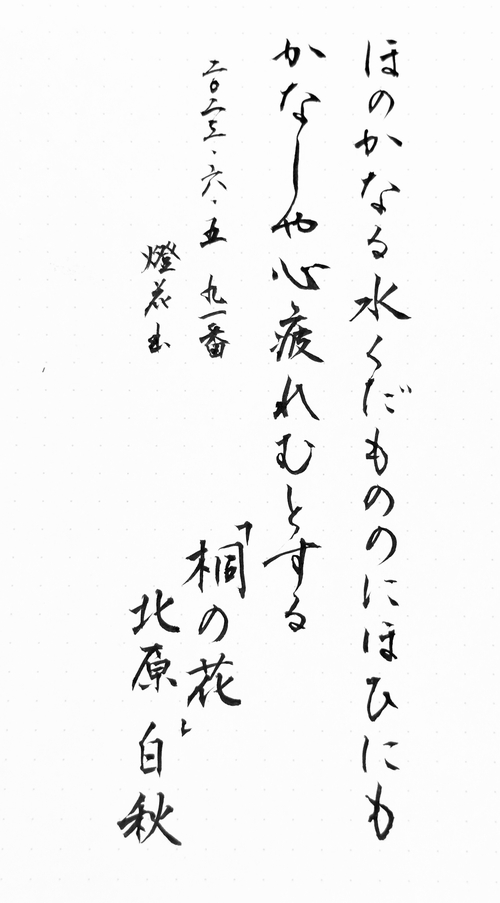 ほのかなる水くだもののにほひにも
かなしや心疲れむとする
「桐の花」
北原白秋
二〇二三・六・五 九一番
燈花出